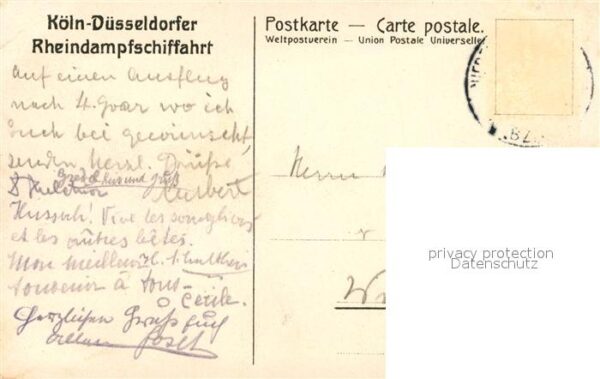 Köln-Düsseldorfer
Rheindampfschiffahrt
Postkarte — Carte postale.
Weltpostverein — Union Postale Universelle
Auf einen Ausflug
nach St. Goar wo ich
Euch bei gewünscht,
senden herzl. Grüße
und Gruß
Hussah! Vive les sangliers
et les autres bêtes.
Mon meilleur
souvenir à tous
Cécile.
Herzlichen Gruß Euch
allen Josef
Herrn
privacy protection
Datenschutz